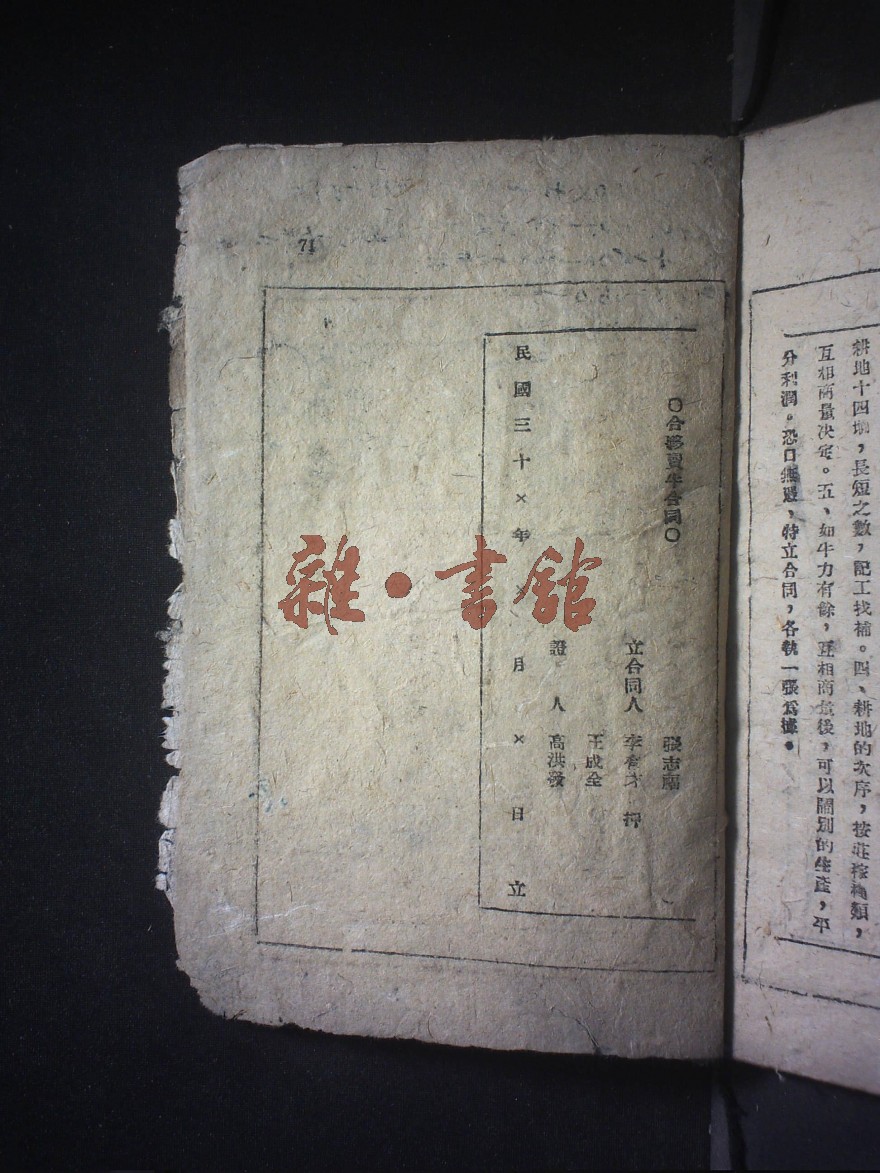 耕地十四垧，長短之數，記工找補。四、耕地的次序，按莊稼種類，
互相商量决定。五、如牛力有餘，互相商量後，可以關別的生產，平
分利潤。恐口無憑，特立合同，各執一張爲據。
71
〇合夥買牛合同〇
張志
立合同人 李有才 押
王成全
證人 高洪發
民國三十×年 月×日立
雜·書館